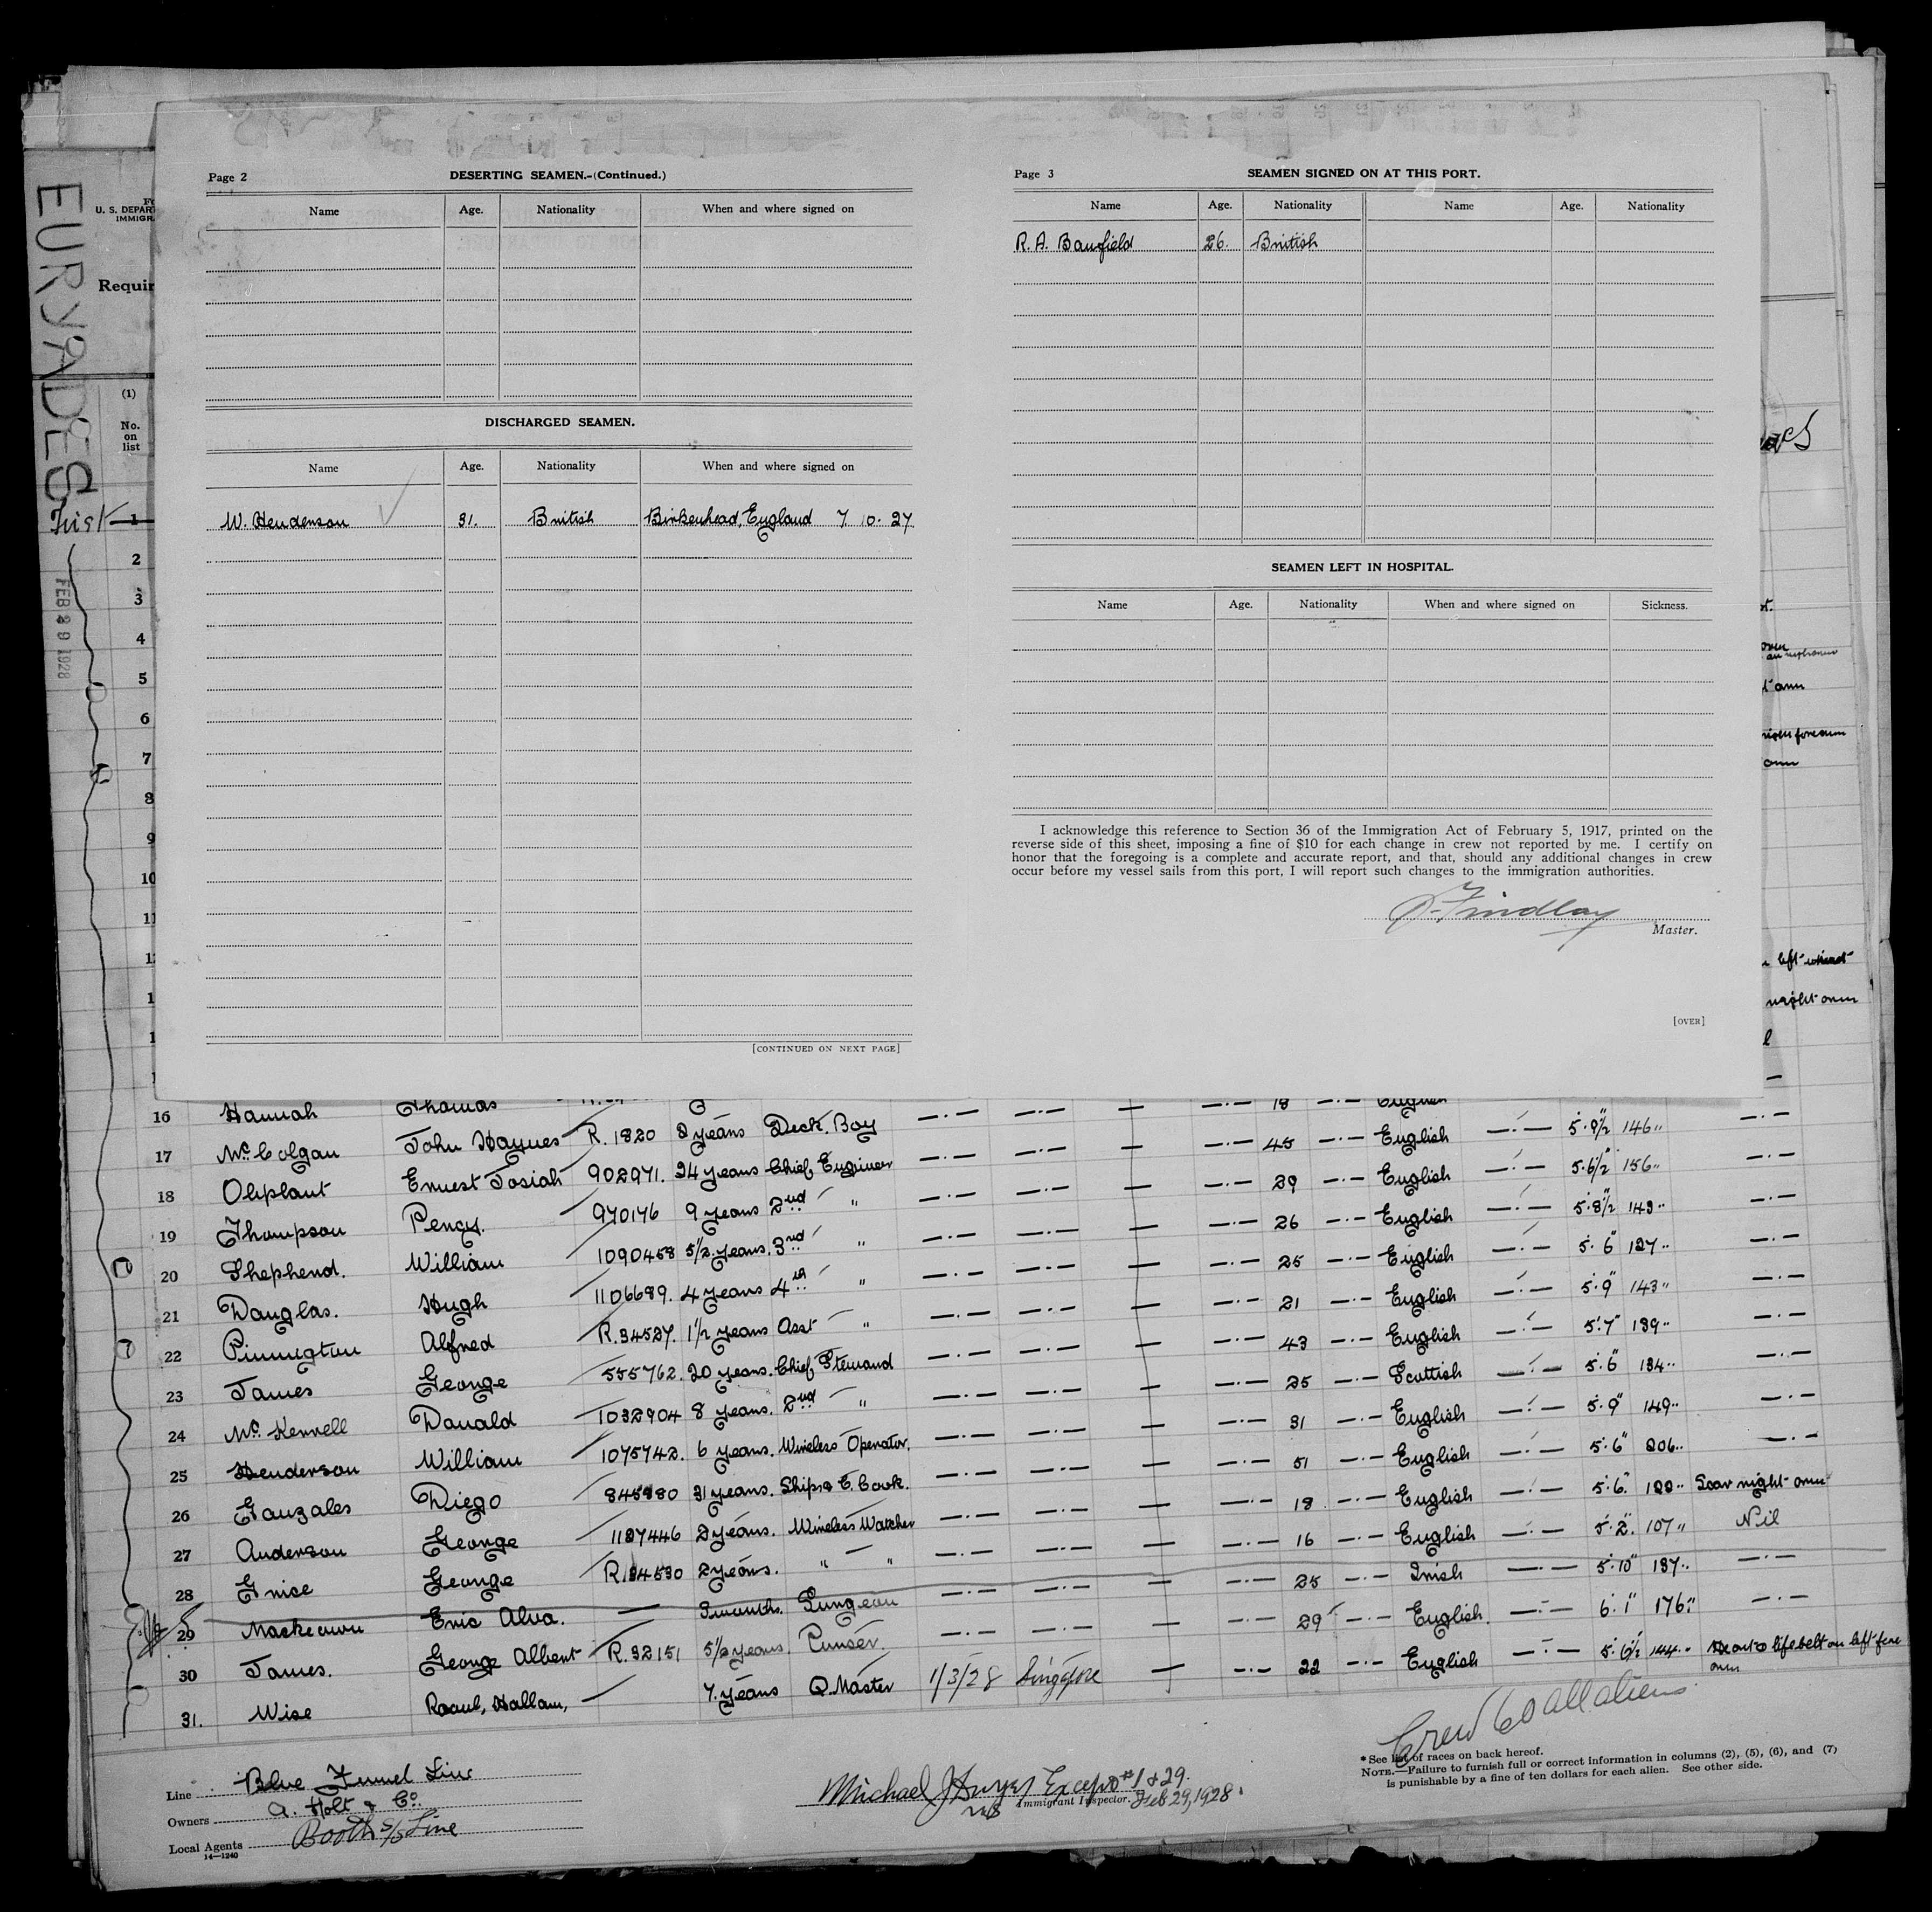 EURYADES
U. S. DEPAR
IMMIGR
Requir
(1)
No.
on
list
FEB 29 1928
Page 2 DESERTING SEAMEN.-(Continued.)
Name Age. Nationality When and where signed on
DISCHARGED SEAMEN.
Name Age. Nationality When and where signed on
W. Henderson 31. British Birkenhead, England 7. 10. 27
[CONTINUED ON NEXT PAGE]
Page 3 SEAMEN SIGNED ON AT THIS PORT.
Name Age. Nationality Name Age. Nationality
R. A. Banfield 26. British
SEAMEN LEFT IN HOSPITAL.
Name Age. Nationality When and where signed on Sickness.
I acknowledge this reference to Section 36 of the Immigration Act of February 5, 1917, printed on the
reverse side of this sheet, imposing a fine of $10 for each change in crew not reported by me. I certify on
honor that the foregoing is a complete and accurate report, and that, should any additional changes in crew
occur before my vessel sails from this port, I will report such changes to the immigration authorities.
D. Findlay
Master.
[OVER]
1
2
3
4
5
6
7
8
9
10
11
left wrist
right arm
16 Hannah Thomas 18 English
17 Mc. Colgan John Haynes R. 1820 2 years Deck. Boy 45 English 5.9½" 146"
18 Oliphant Ernest Josiah 902971. 24 years Chief Engineer 29 English 5.6½" 156"
19 Thompson Percy. 970176 9 years 2nd " 26 English 5.8½" 143"
20 Shepherd. William 1090458 5½ years. 3rd " 25 English 5.6" 127"
21 Douglas. Hugh 1106689. 4 years 4th " 21 English 5.9" 143"
22 Pinnington Alfred R.34527. 1½ years Asst " 43 English 5.7" 139"
23 James George 555762. 20 years. Chief Steward 25 Scottish 5.6" 134"
24 Mc. Kennell Donald 1032904 8 years. 2nd " 31 English 5.9" 149"
25 Henderson William 1075742. 6 years. Wireless Operator. 51 English 5.6" 206"
26 Gauzales Diego 31 years. Ships C. Cook. 18 English 5.6. Scar right arm
27 Anderson George 1127446 2 years. Wireless Watcher 16 English 5.2. 107" Nil
28 Grice George 2 years. " " 25 Irish 5.10" 137"
29 Mackeown Eric Alva. months. Surgeon 29 English. 6.1" 176"
30 James. George Albert R.32151 5½ years. Purser. 22 English 5.6½ 144" lifebelt on left fore
arm
31. Wise Raoul, Hallam, 7. years Q. Master 1/3/28 Singapore
Crew 60 all aliens.
*See list of races on back hereof.
NOTE.—Failure to furnish full or correct information in columns (2), (5), (6), and (7)
is punishable by a fine of ten dollars for each alien. See other side.
Line Blue Funnel Line
Owners A. Holt & Co.
Local Agents Booth S/S Line
14—1240
Michael J Dwyer Except #1 & 29.
Immigrant Inspector. Feb 29, 1928.